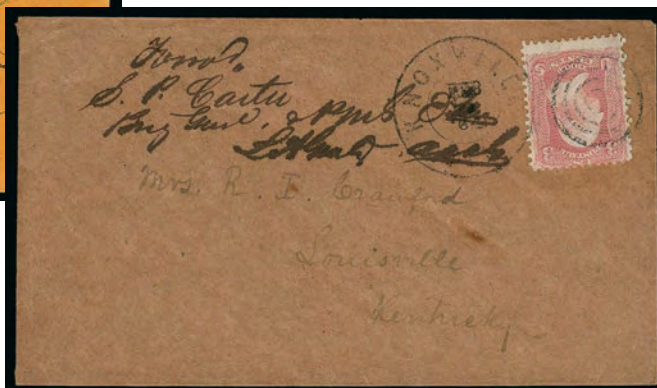 Forw'd.
S. P. Carter
Brig Genl. & PMG
KNOXVILLE
Mrs. R. I. Crawford
Louisville
Kentucky